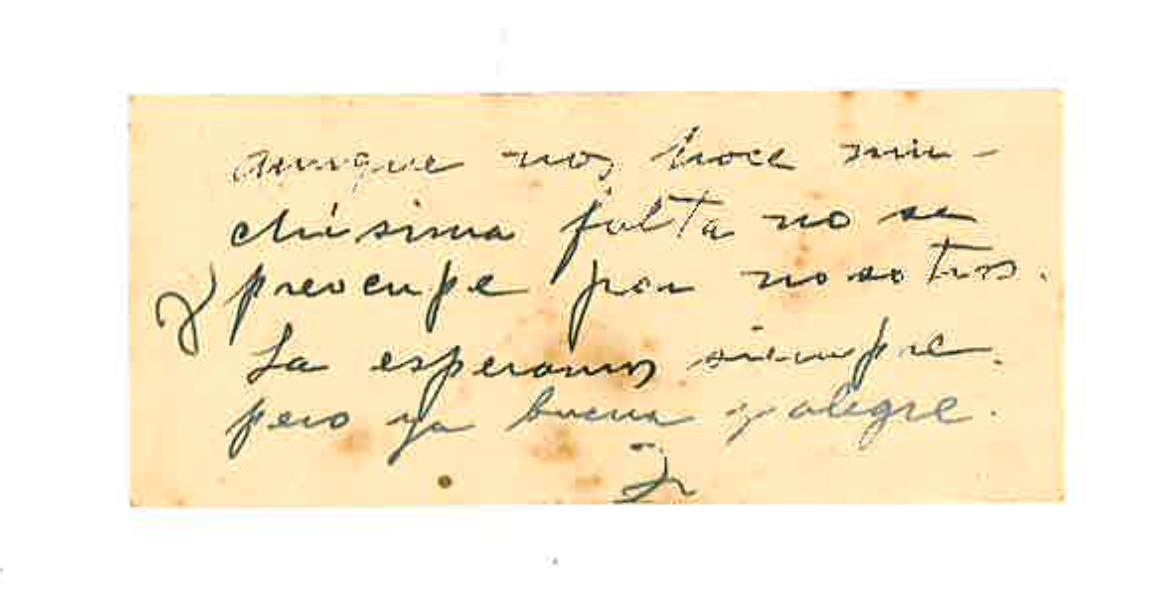 aunque nos hace mu-
chísima falta no se
preocupe por nosotros.
La esperamos siempre.
pero ya buena y alegre.